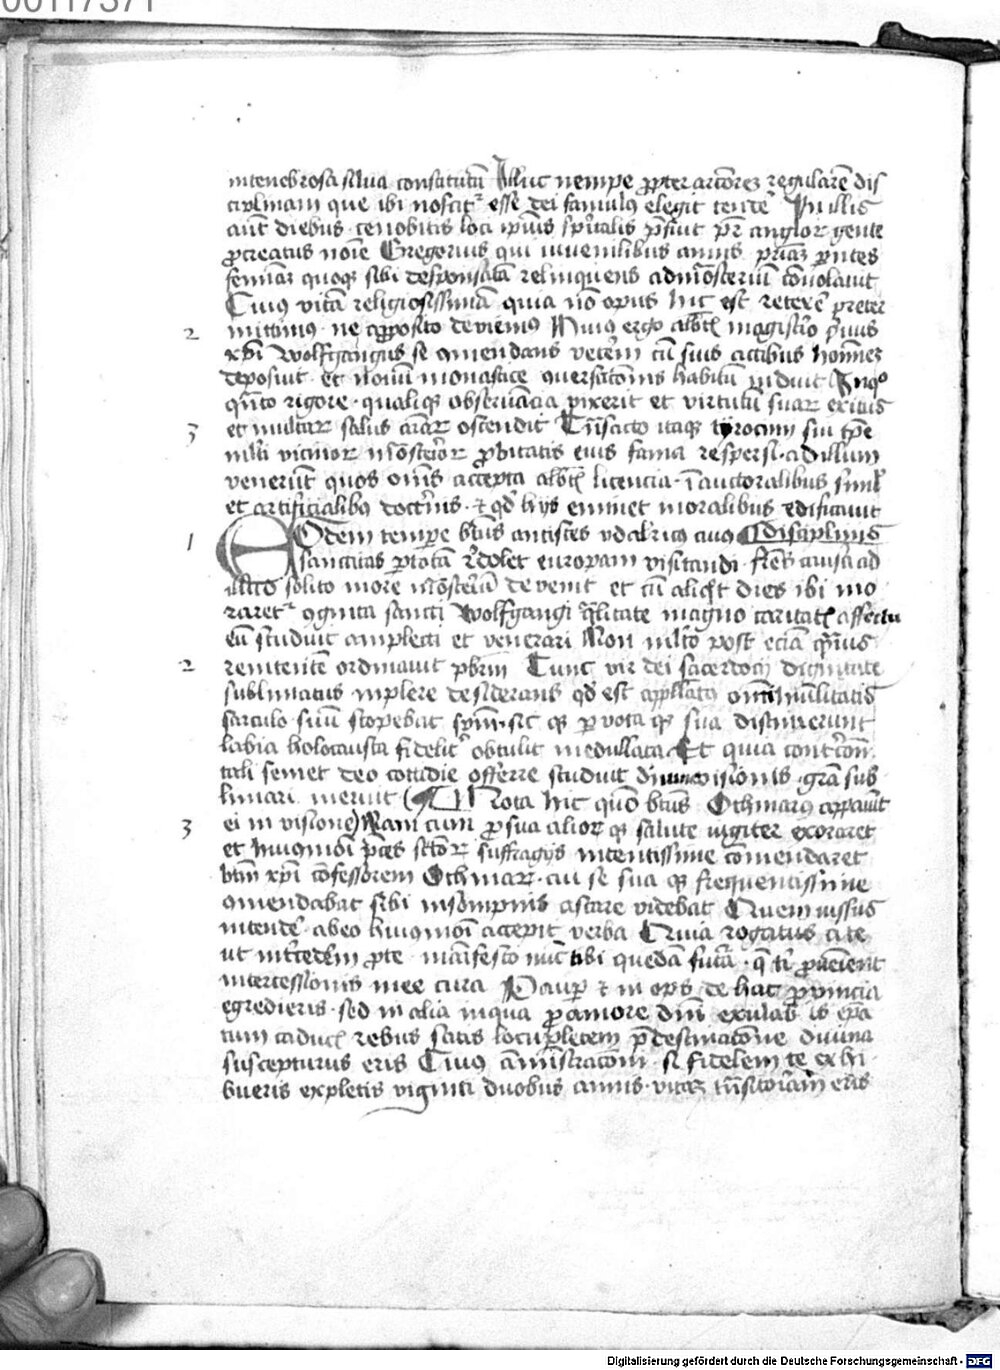 00117371
intenebrosa silua constitutū Illuc nempe ꝓpter arcōrez regularē dis
ciplinam que ibi noscitr esse dei famulꝯ elegit tende In illis
aut diebus cenobitis loci ipius spūalis p̄fuit pr anglorꝝ gente
ꝓcreatus noīe Gregorius qui iuuenilibus annis patriā parentes
feminā quoqꝫ sibi desponsatā relinquens ad mōsteriū cōuolauit
Cuiꝯ vitā religiosissimā quia nō opus hic est retexe preter
mittimꝯ ne a ꝓposito deuiemꝯ Huiꝯ ergo abbtꝭ magistrio
2
xpi Wolfgangus se ꝯmendans veterem cū suis actibus hominez
deposuit et nouū monastice ꝯuersatōnis habitū induit In quo
qnto rigore qualiqꝫ obseruācia vixerit et virtutū suarꝝ exitus
et multarꝝ salus aīarꝝ ostendit Trāsacto itaqꝫ tyrocinii sui tpe
3
mlti vicinorꝝ mōsterorꝝ ꝓbitatis eius fama respersi ad illum
venerūt quos omīs accepta abbtꝭ licencia in auctoralibus siml
et artificialibꝯ doctrīnis et qd hijs eminet moralibus edificauit
1
EOdem tempore btūs antistes vdalricꝯ cuiꝯ Disciplinis
sanctitas ꝑ totam redolet europam visitandi frēs causa ad
illud solito more mōsteriū deuenit et cū aliqt dies ibi mo
raretr ꝯgnita sancti Wolfgangi qlitate magno caritatꝭ affectu
eū studuit amplecti et venerari Non mlto post eciā quis
2
renitentē ordinauit pbrm Tunc vir dei sacerdocij dignitate
sublimatus inplere desiderans qd est humilitatis
sarculo suū scopebat spm sic qꝫ ꝑ vota qꝫ sua distinxerunt
labia holocausta fidelitr obtulit medullata Et quia
tali semet deo cottidie offerre studuit visionis grā sub
limari meruit Nota hic quō btūs Othmarꝯ apparuit
3
ei in visione Nam cum ꝓ sua aliorꝝ qꝫ salute iugiter exoraret
et huiusmōi pces sctōrꝝ suffragijs intentissime cōmendaret
btm xpi cōfessorem Othmarꝝ cui se sua qꝫ frequentissime
ꝯmendabat sibi insompnis astare videbat Quem nissus
intende ab eo huiusmōi accepit verba Quia rogatus a te
ut ꝓ te manifesto nūc tibi quedā futura que tibi ꝓuenient
intercessionis mee cura Pauꝑ et inops de hac ꝓuincia
egredieris sed in alia in qua ꝓ amore dni exulabis epa
tum caducꝭ rebus satis locupletem pdestinacōne diuina
suscepturus eris Cuiꝯ amīnistracōni si fidelem te exhi
bueris expletis viginti duobus annis vitaꝫ trāsitoriam eris
Digitalisierung gefördert durch die Deutsche Forschungsgemeinschaft - DFG